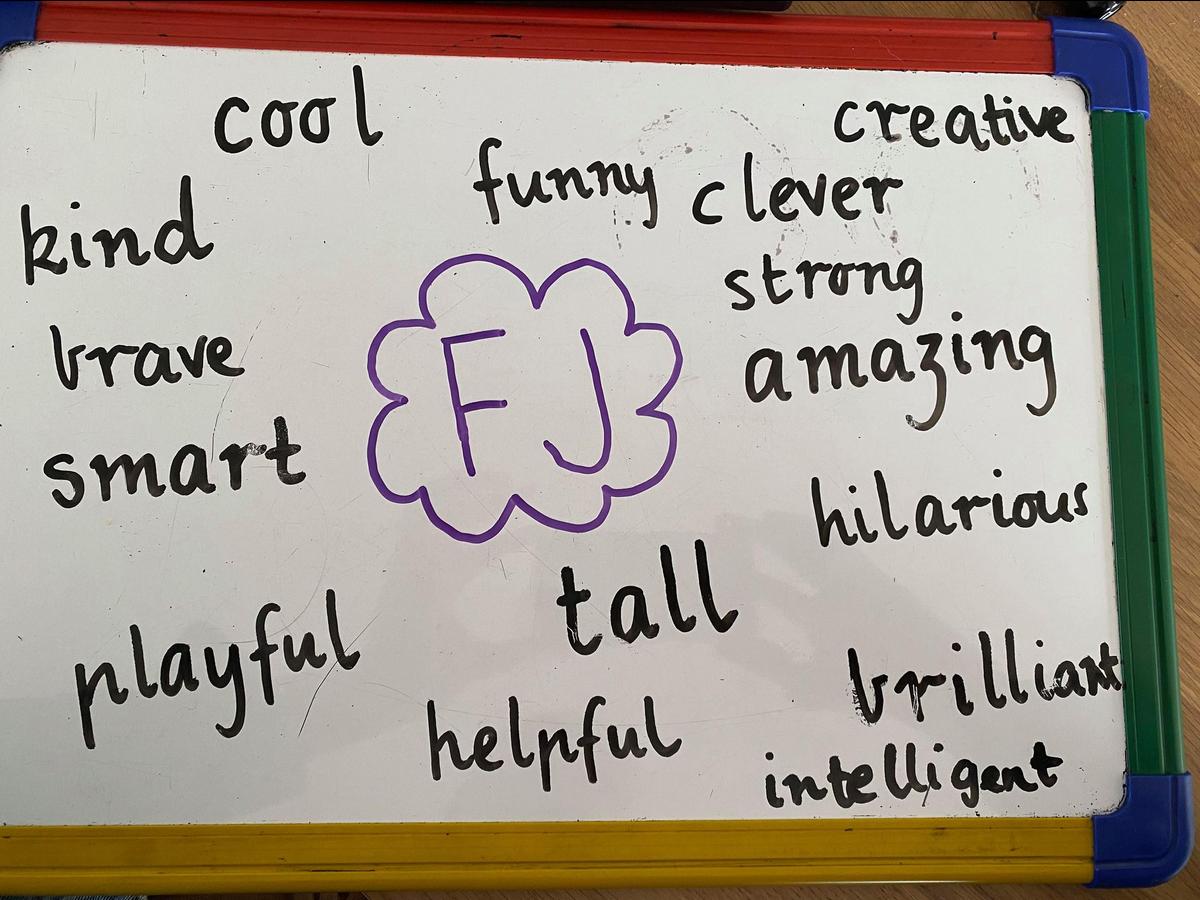 cool
creative
funny
clever
kind
strong
brave
amazing
FJ
smart
hilarious
tall
playful
brilliant
helpful
intelligent